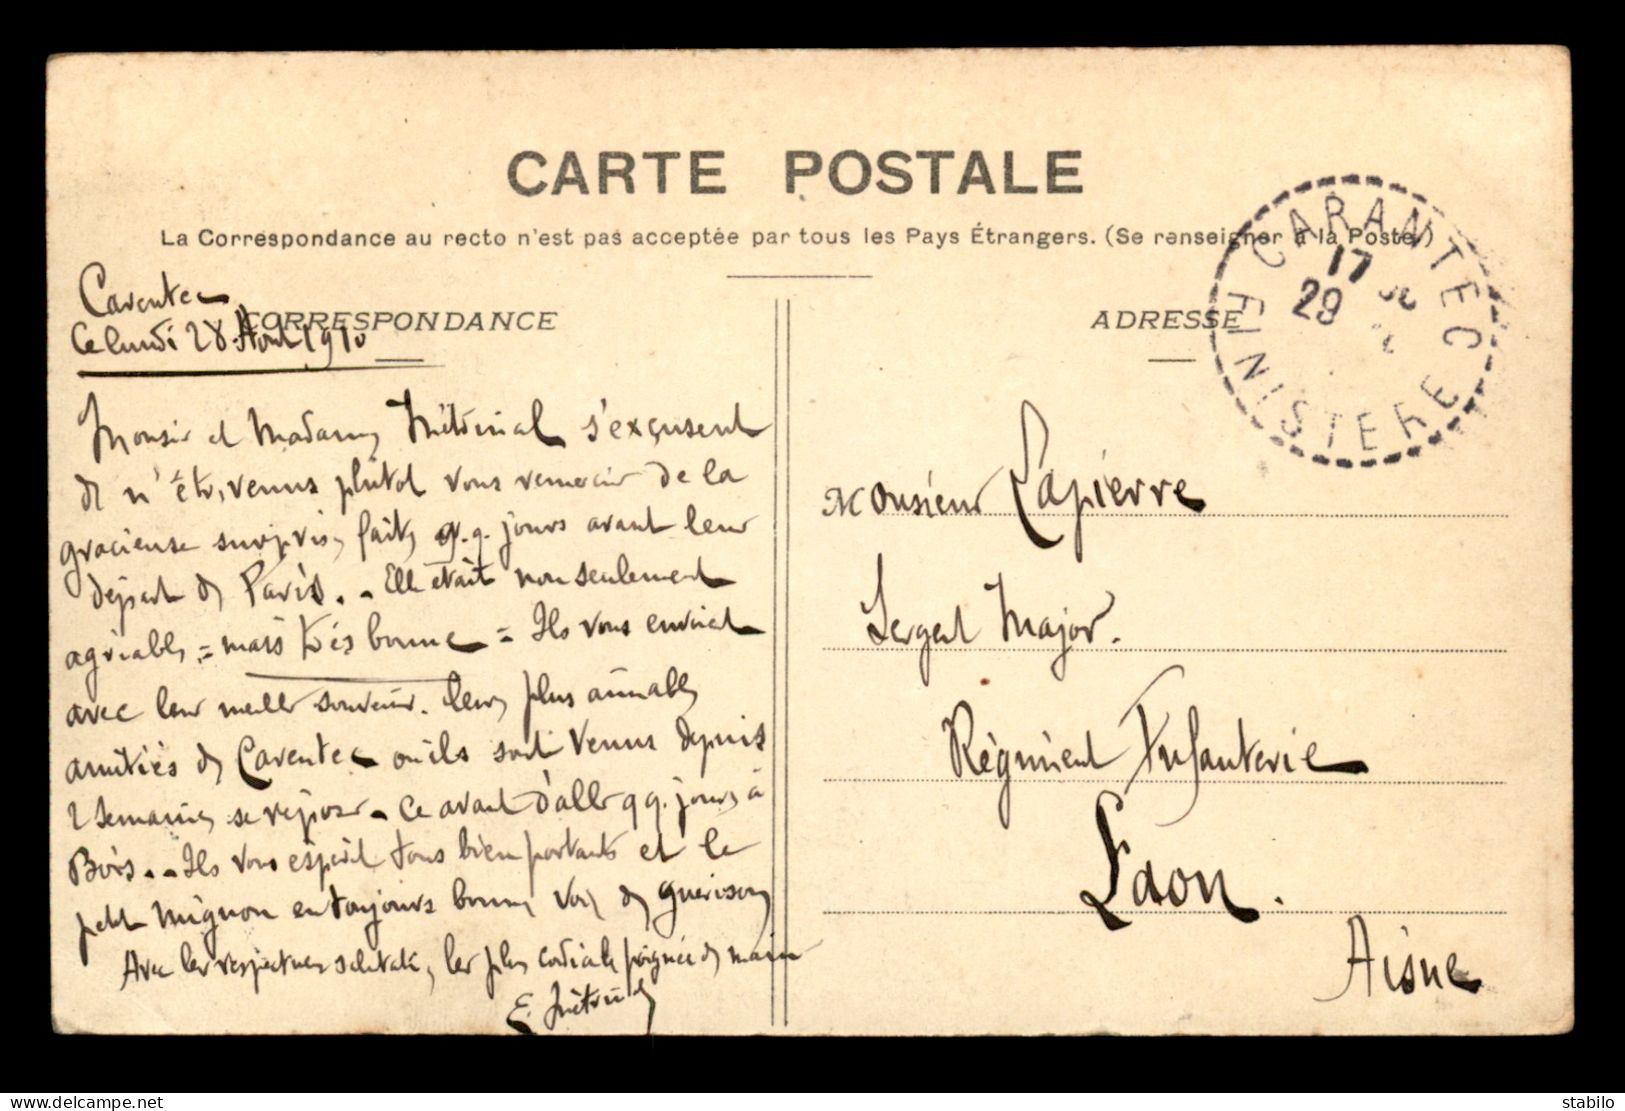 CARTE POSTALE
La Correspondance au recto n'est pas acceptée par tous les Pays Étrangers. (Se renseigner à la Poste)
CORRESPONDANCE
Carentec
Ce lundi 28 Août 1910
Monsieur et Madame s'excusent
de n'être venus plutot vous remercier de la
gracieuse surprise faite q.q. jours avant leur
départ de Paris. - Elle était non seulement
agréable, = mais très bonne = Ils vous envoient
avec leur meilleur souvenir. leurs plus aimables
amitiés de Carentec où ils sont venus depuis
2 semaines se reposer - Ce avant d'aller q q. jours à
Bois. - Ils vous espèrent tous bien portants et le
petit mignon en toujours bonne voie de guérison
Avec les respectueuses salutations, les plus cordiales poignées de main
E.
ADRESSE
CARANTEC
FINISTERE
17
29
Monsieur Lapierre
Sergent Major.
Régiment Infanterie
Laon.
Aisne
delcampe.net
stabilo